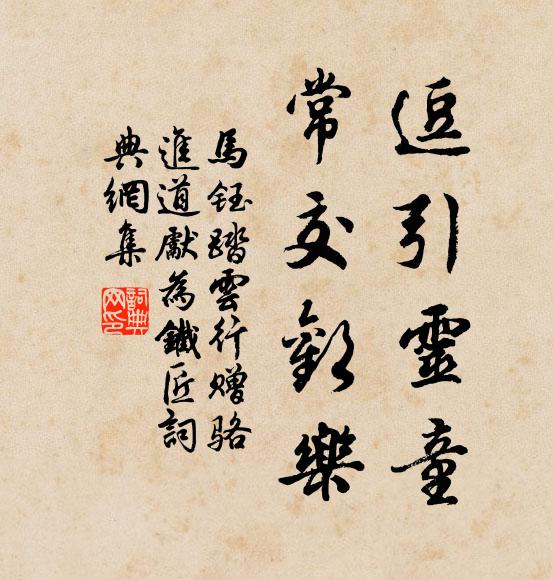 逗引靈童
常交歡樂
馬鈺踏雲行贈駱
進道獻為鐵匠詞
典網集
詞典网印